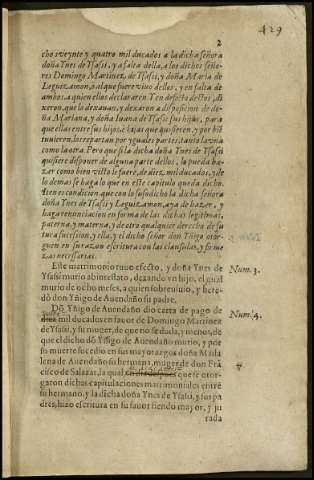 2
429
chos veynte y quatro mil ducados a la dicha señora
doña Ynes de Ysasi, y a falta della, a los dichos seño-
res Domingo Martinez, de Ysasi, y doña Maria de
Leguiçamon, o al que fuere vivo dellos, y en falta de
ambos, a quien ellos declararen. Y en defecto dellos, di
xeron, que lo dexauan, y dexaron a disposicion de do-
ña Mariana, y doña Iuana de Ysasi sus hijas, para
que ellas entre sus hijos, è hijas que quisieren, y por biẽ
tuuieren, lo repartan por yguales partes, tanto la vna
como la otra. Pero que si la dicha doña Ynes de Ysasi
quisiere disponer de alguna parte dellos, lo pueda ha-
zer como bien visto le fuere, de diez mil ducados, y de
lo demas se haga lo que en este capitulo queda dicho.
Yten es condicion que con lo susodicho la dicha señora
doña Ynes de Ysasi y Leguiçamon, aya de hazer, y
haga renunciacion en forma de las dichas legitimas,
paterna, y materna, y de otro qualquier derecho de fu-
tura sucession, y ella, y el dicho señor don Yñigo otor-
guen en su razon escritura con las clausulas, y firme
zas necessarias.
Este matrimonio tuuo efecto, y doña Ynes de
Ysasi murio abintestato, dexando vn hijo, el qual
murio de ocho meses, a quien sobreuiuio, y here-
dò don Yñigo de Auendaño su padre.
Num. 3.
Dõ Yñigo de Auendaño dio carta de pago de
mil ducados en fauor de Domingo Martinez
de Ysasi, y su muger, de que no se duda, y menos, de
que el dicho dõ Yñigo de Auendaño murio, y por
su muerte sucedio en sus mayorazgos doña Mada
lena de Auendaño su hermana, muger de don Frã
cisco de Salazar, la qual que se otor-
garon dichas capitulaciones matrimoniales entre
su hermano, y la dicha doña Ynes de Ysasi, y sus pa
dres, hizo escritura en su fauor siendo mayor, y ju
rada
Num. 4.